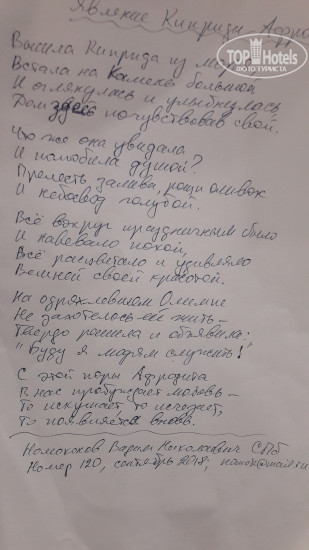 Явление Киприды Афро
TOPHotels
ФОТО ТУРИСТА
Вышла Киприда из моря
Встала на камень большой
И оглянулась и улыбнулась
Дом здесь почувствовав свой.
Что же она увидала
И полюбила душой?
Прелесть залива, рощи оливок
И небосвод голубой.
Всё вокруг праздничным было
И навевало покой,
Всё расцветало и удивляло
Вешней своей красотой.
На одряхлевшем Олимпе
Не захотелось ей жить —
Твердо решила и объявила:
"Буду я людям служить!"
С этой поры Афродита
В нас пробуждает любовь —
То искушает, то исчезает,
То появляется вновь.
Вадим Николаевич СПб
Номер 120, сентябрь 2018,